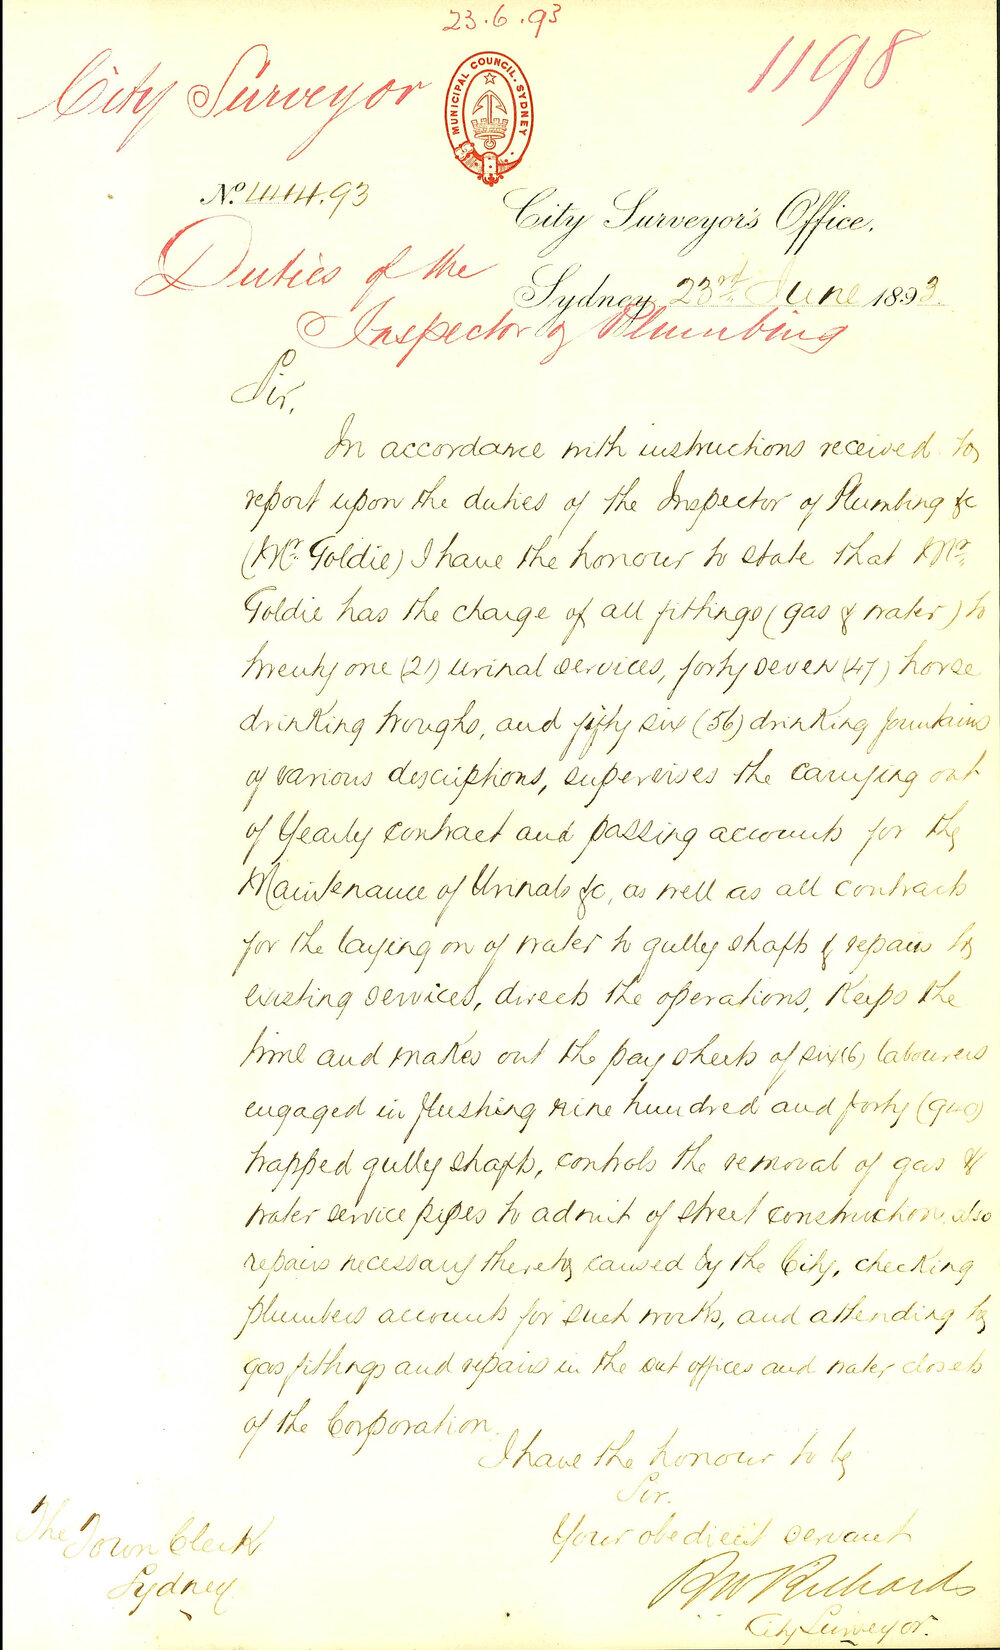 23.6.93
City Surveyor
1198
MUNICIPAL COUNCIL. SYDNEY
No. 444.93
City Surveyor's Office.
Duties of the
Sydney 23rd June 1893.
Inspector of Plumbing
Sir,
In accordance with instructions received to
report upon the duties of the Inspector of Plumbing &c
(Mr. Goldie) I have the honour to state that Mr.
Goldie has the charge of all fittings (gas & water) to
twenty one (21) urinal services, forty seven (47) horse
drinking troughs, and fifty six (56) drinking fountains
of various descriptions, supervises the carrying out
of Yearly contract and passing accounts for the
Maintenance of Urinals &c, as well as all contracts
for the laying on of water to gully shafts & repairs to
existing services, directs the operations, Keeps the
time and makes out the pay sheets of six (6) labourers
engaged in flushing nine hundred and forty (940)
trapped gully shafts, controls the removal of gas &
water service pipes to admit of street construction, also
repairs necessary thereto caused by the City, checking
plumbers accounts for such works, and attending to
gas fittings and repairs in the out offices and water closets
of the Corporation.
I have the honour to be
Sir.
Your obedient servant
RW Richards
City Surveyor.
The Town Clerk
Sydney